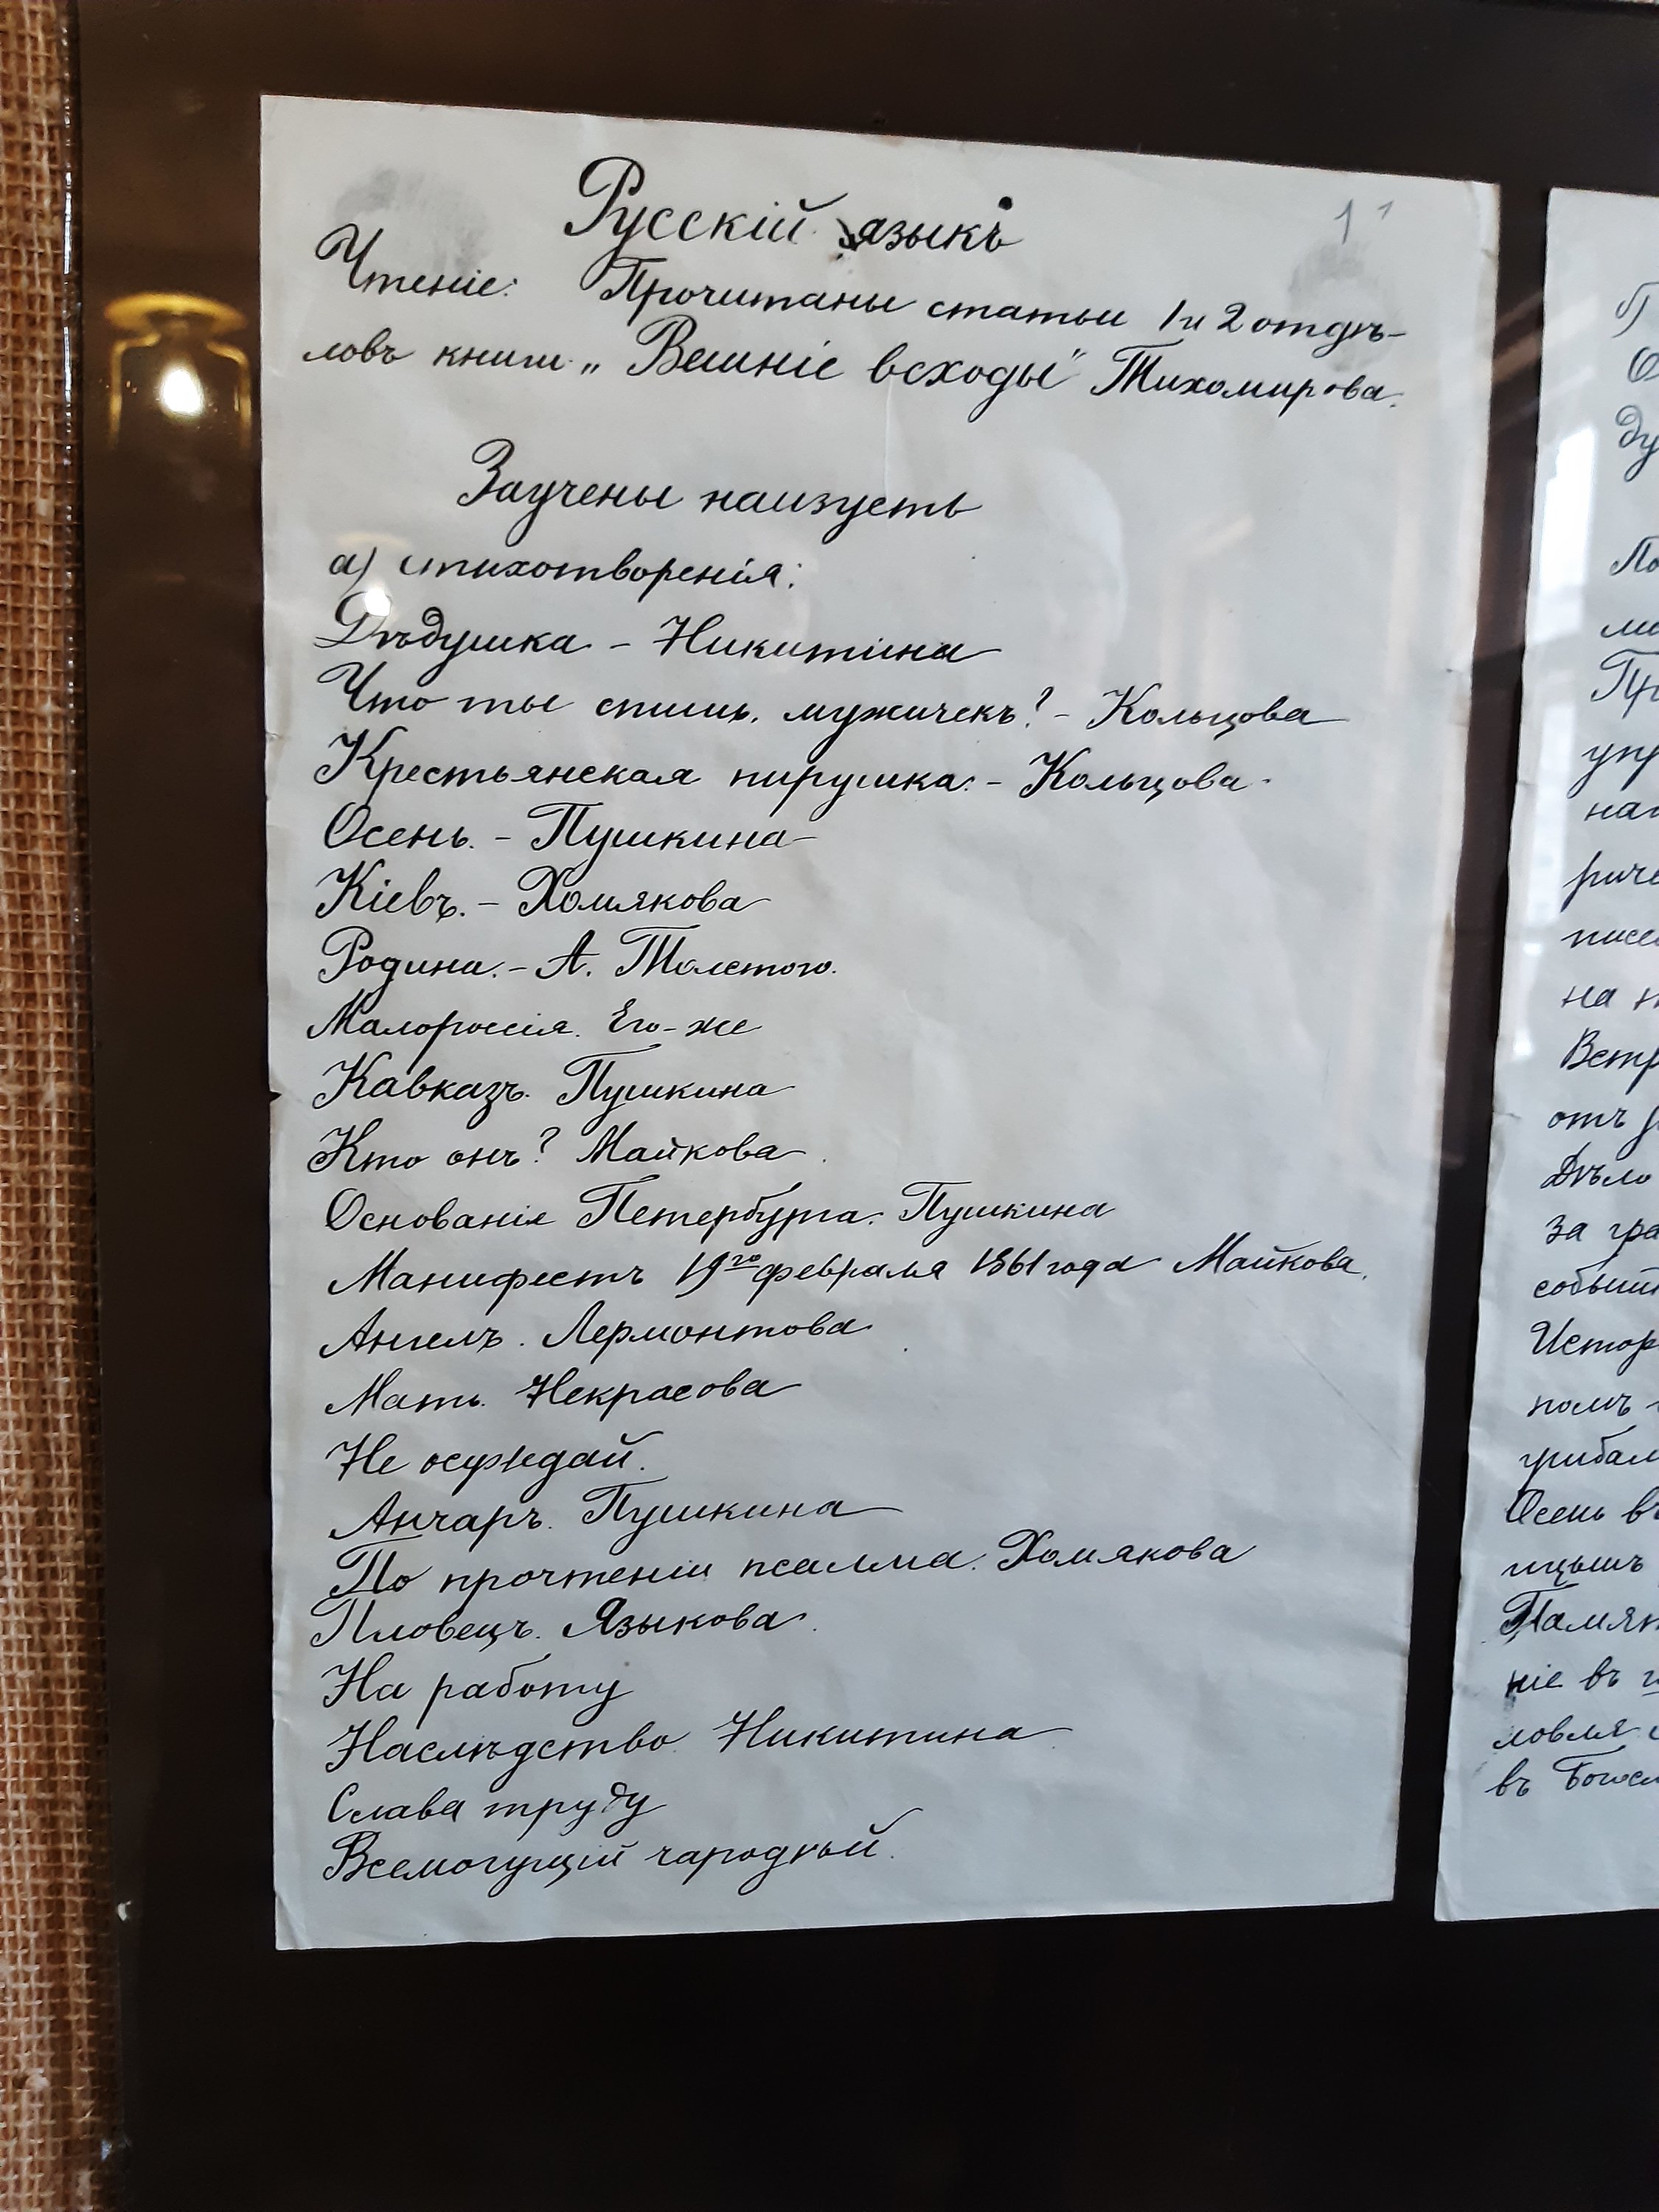 Русскій языкъ
1
Чтеніе: Прочитаны статьи 1 и 2 отдѣ-
ловъ книги „Вешніе всходы" Тихомирова.
Заучены наизусть
а) стихотворенія:
Дѣдушка - Никитина
Что ты спишь, мужичекъ? - Кольцова
Крестьянская пирушка. - Кольцова.
Осень. - Пушкина
Кіевъ. - Хомякова
Родина. - А. Толстого.
Малороссія. Его-же
Кавказъ. Пушкина
Кто онъ? Майкова.
Основаніе Петербурга. Пушкина
Манифестъ 19го февраля 1861 года Майкова.
Ангелъ. Лермонтова
Мать. Некрасова
Не осуждай.
Анчаръ. Пушкина
По прочтеніи псалма. Хомякова
Пловецъ. Языкова.
На работу
Наслѣдство Никитина
Слава труду
Всемогущій чародѣй.
б)
за
событі
Истор
грибам
Осень въ
ніе въ
ловля
въ